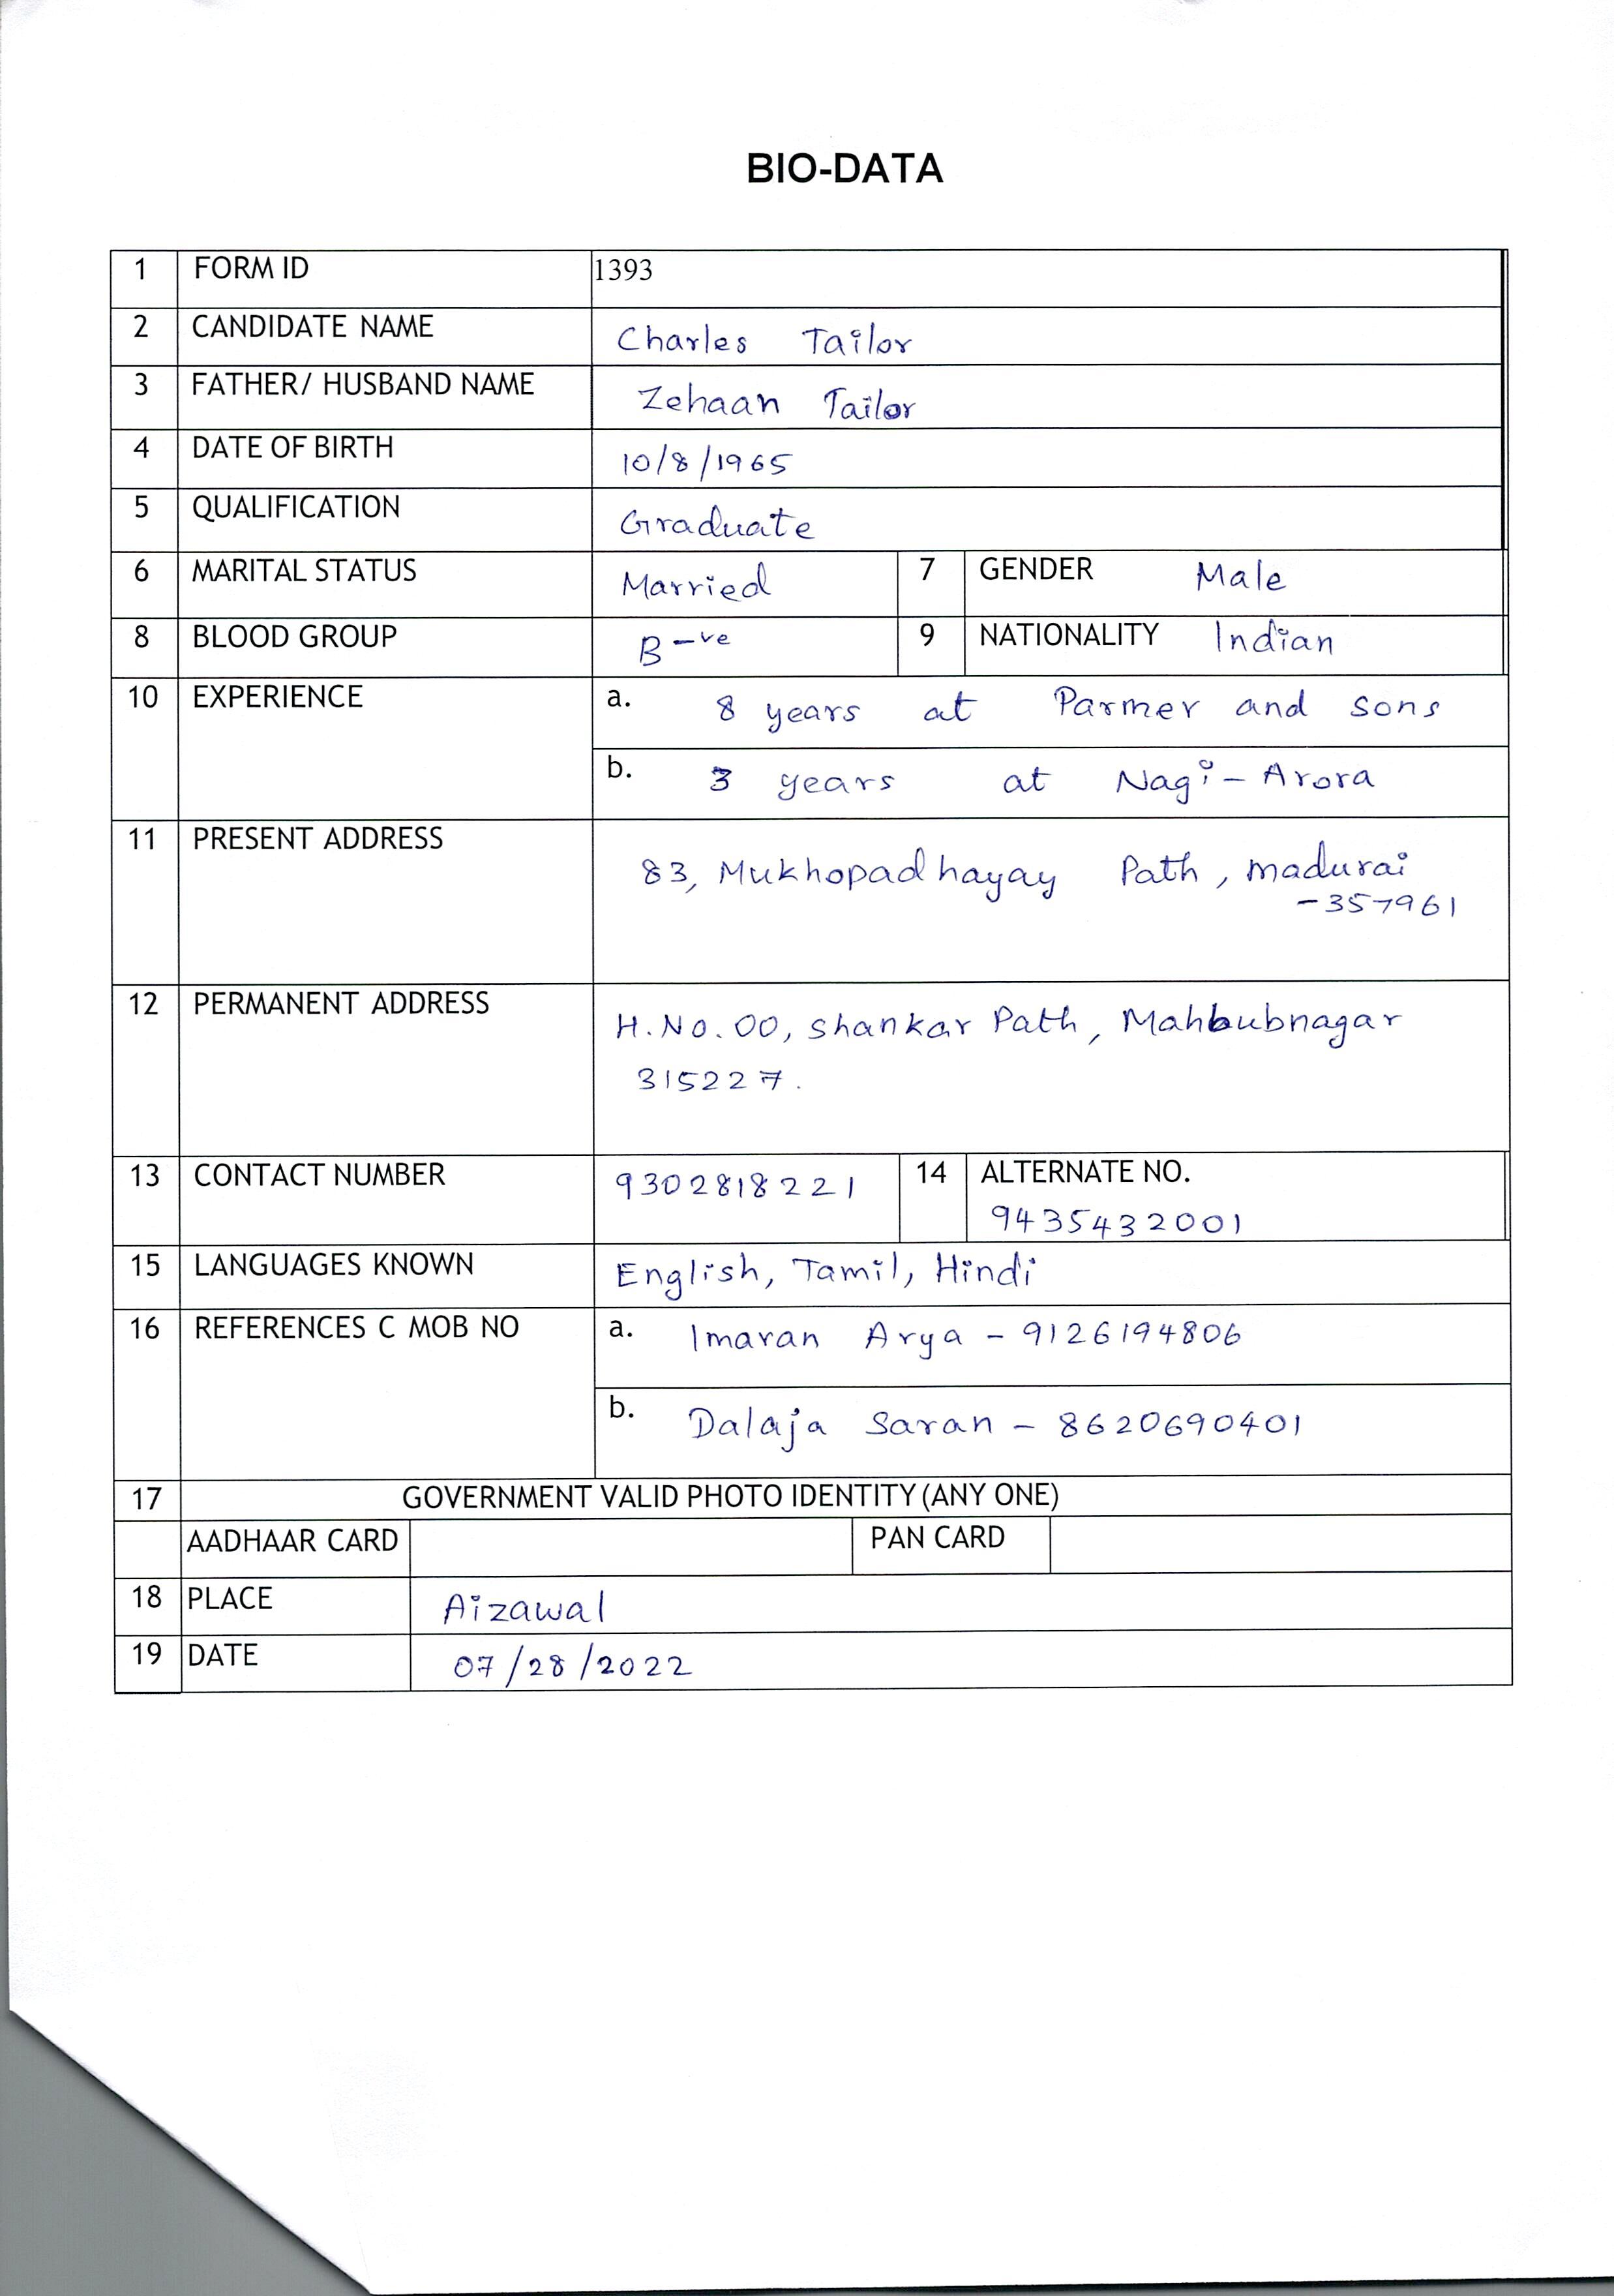 BIO-DATA
1 FORM ID 1393
2 CANDIDATE NAME Charles Tailor
3 FATHER/ HUSBAND NAME Zehaan Tailor
4 DATE OF BIRTH 10/8/1965
5 QUALIFICATION Graduate
6 MARITAL STATUS Married 7 GENDER Male
8 BLOOD GROUP B-ve 9 NATIONALITY Indian
10 EXPERIENCE a. 8 years at Parmer and sons
b. 3 years at Nagi-Arora
11 PRESENT ADDRESS 83, Mukhopadhayay Path, madurai
-357961
12 PERMANENT ADDRESS H.No.00, Shankar Path, Mahbubnagar
315227.
13 CONTACT NUMBER 9302818221 14 ALTERNATE NO.
9435432001
15 LANGUAGES KNOWN English, Tamil, Hindi
16 REFERENCES C MOB NO a. Imaran Arya - 9126194806
b. Dalaja Saran - 8620690401
17 GOVERNMENT VALID PHOTO IDENTITY (ANY ONE)
AADHAAR CARD PAN CARD
18 PLACE Aizawal
19 DATE 07/28/2022